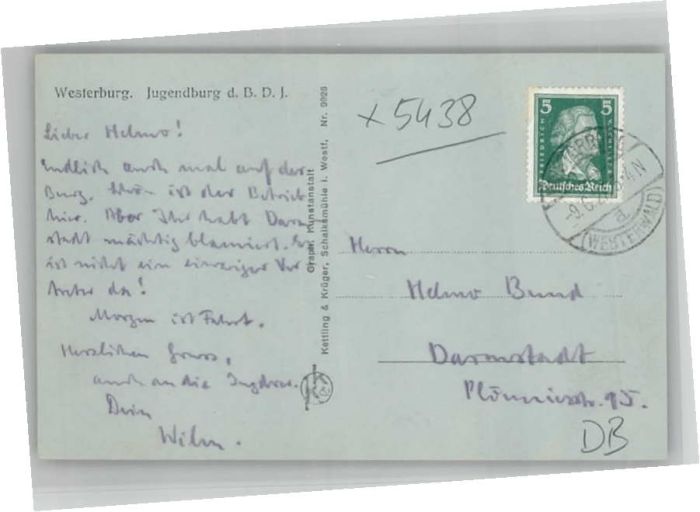 Westerburg. Jugendburg d. B. D. J.
Lieber Helmo!
Endlich auch mal auf der
Burg. Schön ist der Betrieb
hier. Aber Ihr habt Darm
stadt mächtig blamiert. Es
ist nicht ein einziger Ver
treter da!
Morgen ist Fahrt.
Herzlichen Gruss,
auch an die
Dein
Wilm.
Graph. Kunstanstalt
Kettling & Krüger, Schalksmühle i. Westf. Nr. 9926
x5438
5 5
FRIEDRICH
Deutsches Reich
(WESTERWALD)
Herrn
Helmo Bund
Darmstadt
DB